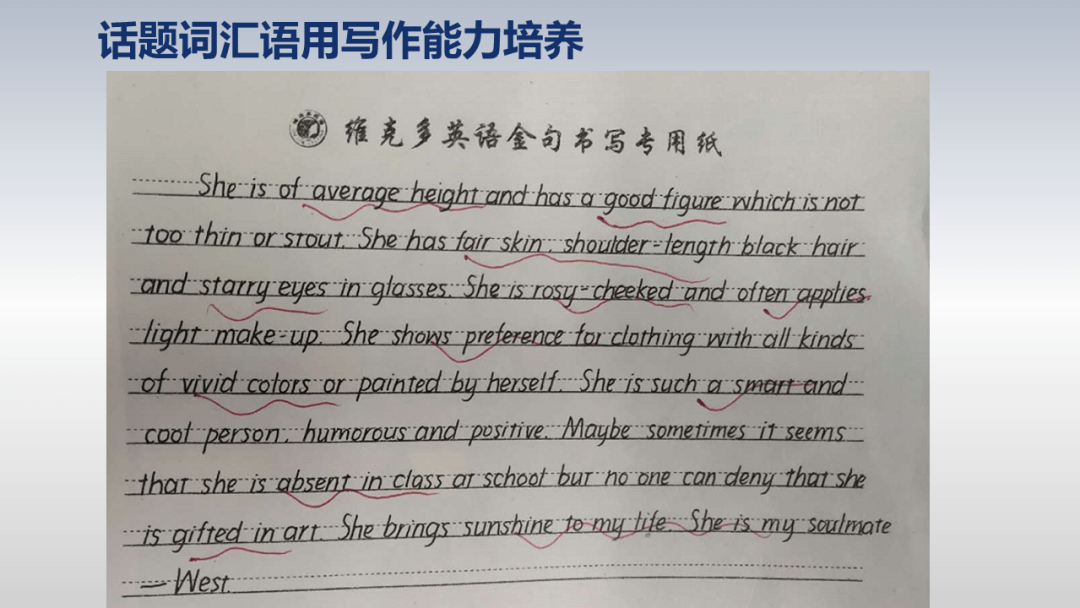 话题词汇语用写作能力培养
维克多英语金句书写专用纸
She is of average height and has a good figure which is not
too thin or stout. She has fair skin, shoulder-length black hair
and starry eyes in glasses. She is rosy-cheeked and often applies
light make-up. She shows preference for clothing with all kinds
of vivid colors or painted by herself. She is such a smart and
cool person, humorous and positive. Maybe sometimes it seems
that she is absent in class at school but no one can deny that she
is gifted in art. She brings sunshine to my life. She is my soulmate
— West.